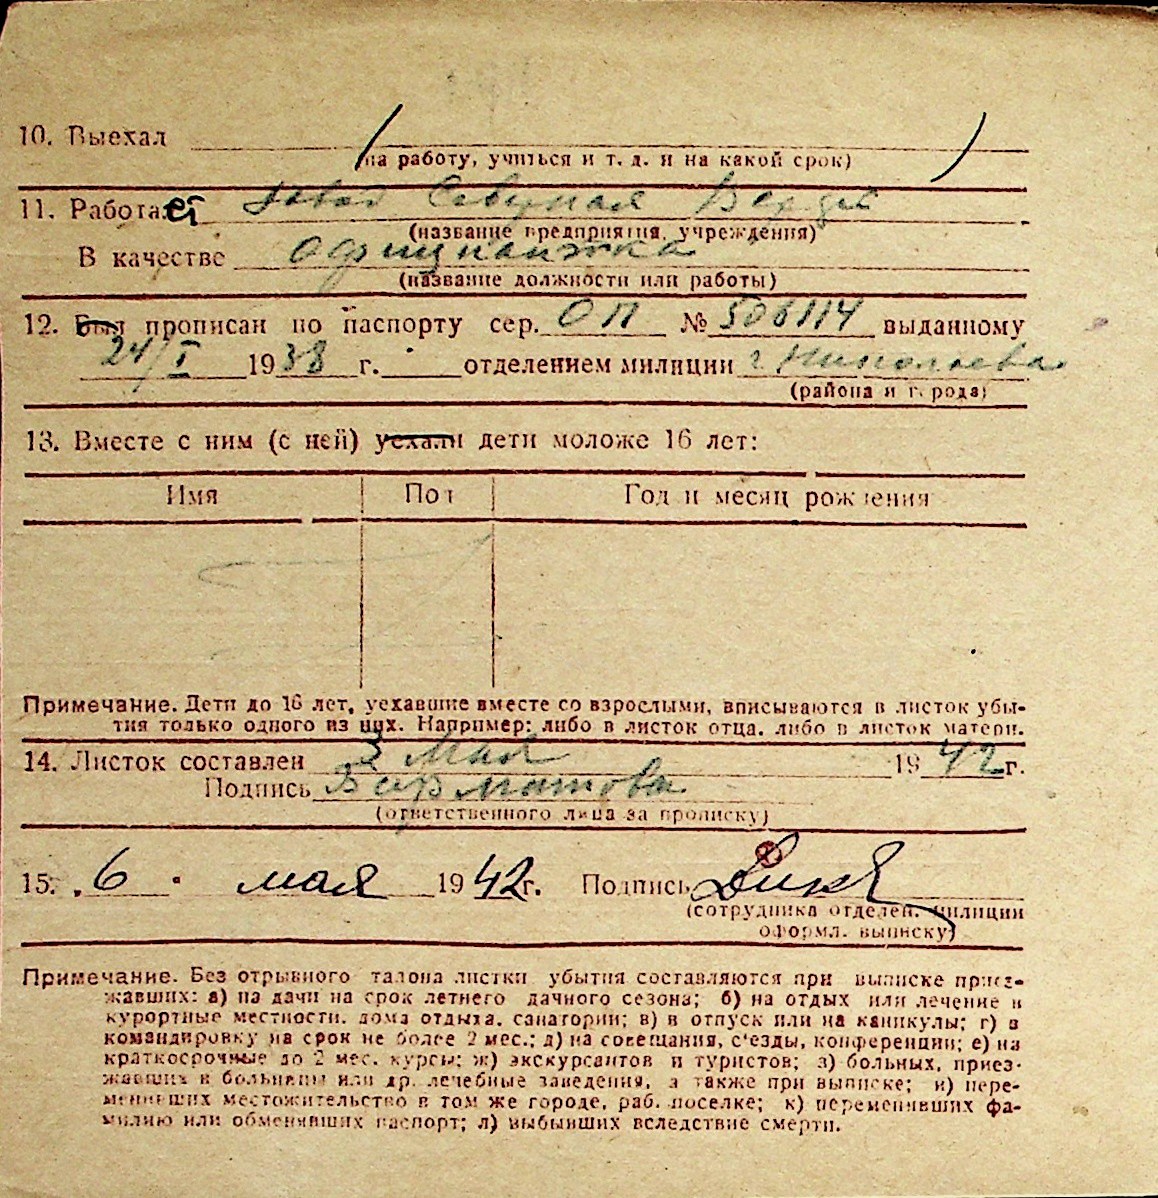 10. Выехал
(на работу, учиться и т. д. и на какой срок)
11. Работает завод Северная Верфь
(название предприятия, учреждения)
В качестве официантка
(название должности или работы)
12. Был прописан по паспорту сер. ОП № 506114 выданному
24/I 1938 г. отделением милиции г. Николаева
(района и города)
13. Вместе с ним (с ней) уехали дети моложе 16 лет:
Имя Пол Год и месяц рождения
Примечание. Дети до 16 лет, уехавшие вместе со взрослыми, вписываются в листок убы-
тия только одного из них. Например: либо в листок отца, либо в листок матери.
14. Листок составлен 3 мая 1942 г.
Подпись
(ответственного лица за прописку)
15. 6 мая 1942 г. Подпись
(сотрудника отделен. милиции
оформл. выписку)
Примечание. Без отрывного талона листки убытия составляются при выписке приез-
жавших: а) на дачи на срок летнего дачного сезона; б) на отдых или лечение в
курортные местности, дома отдыха, санатории; в) в отпуск или на каникулы; г) в
командировку на срок не более 2 мес.; д) на совещания, с'езды, конференции; е) на
краткосрочные до 2 мес. курсы; ж) экскурсантов и туристов; з) больных, приез-
жавших в больницы или др. лечебные заведения, а также при выписке; и) пере-
менивших местожительство в том же городе, раб. поселке; к) переменивших фа-
милию или обменявших паспорт; л) выбывших вследствие смерти.